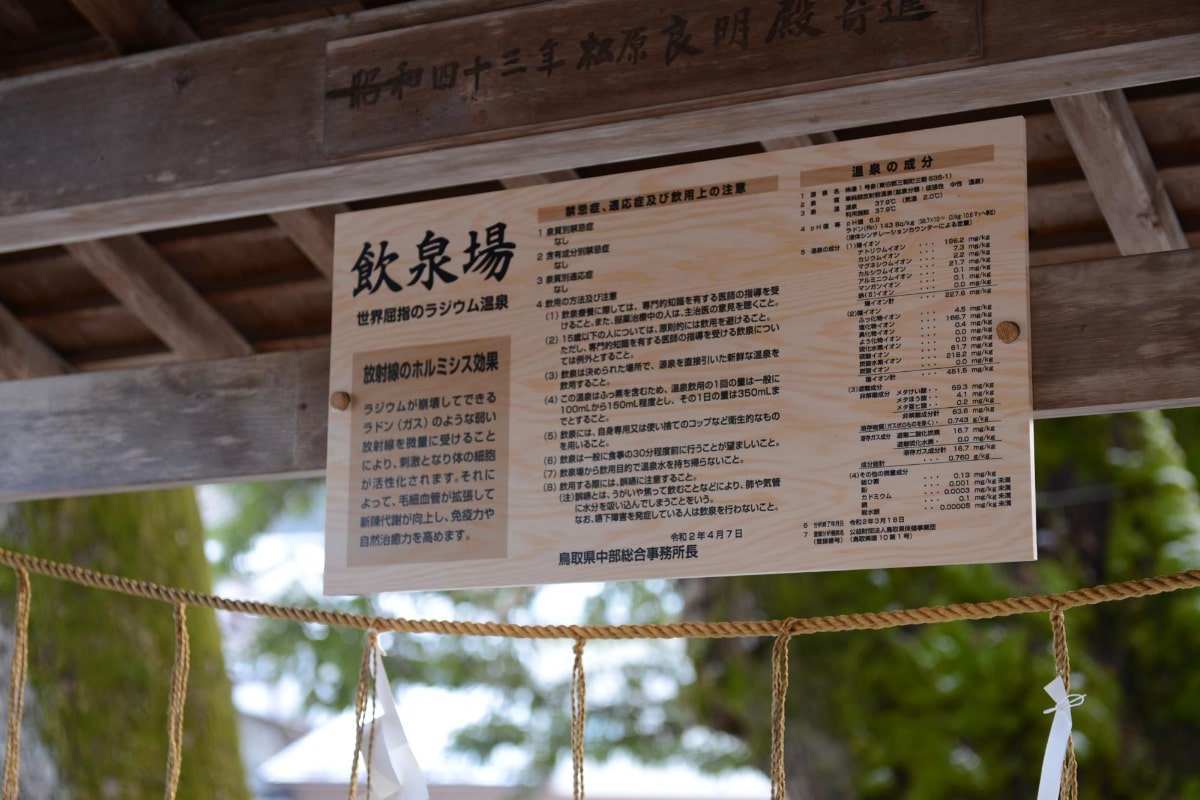 昭和四十三年 松原良明殿寄進
飲泉場
世界屈指のラジウム温泉
放射線のホルミシス効果
ラジウムが崩壊してできる
ラドン（ガス）のような弱い
放射線を微量に受けること
により、刺激となり体の細胞
が活性化されます。それに
よって、毛細血管が拡張して
新陳代謝が向上し、免疫力や
自然治癒力を高めます。
禁忌症、適応症及び飲用上の注意
1 泉質別禁忌症
なし
2 含有成分別禁忌症
なし
3 泉質別適応症
なし
4 飲用の方法及び注意
（1）飲泉療養に際しては、専門的知識を有する医師の指導を受
けること。また、服薬治療中の人は、主治医の意見を聴くこと。
（2）15歳以下の人については、原則的には飲用を避けること。
ただし、専門的知識を有する医師の指導を受ける飲泉につい
ては例外とすること。
（3）飲泉は決められた場所で、源泉を直接引いた新鮮な温泉を
飲用すること。
（4）この温泉はふっ素を含むため、温泉飲用の1回の量は一般に
100mLから150mL程度とし、その1日の量は350mLま
でとすること。
（5）飲泉には、自身専用又は使い捨てのコップなど衛生的なもの
を用いること。
（6）飲泉は一般に食事の30分程度前に行うことが望ましいこと。
（7）飲泉場から飲用目的で温泉水を持ち帰らないこと。
（8）飲用する際には、誤嚥に注意すること。
（注）誤嚥とは、うがいや焦って飲むことなどにより、肺や気管
に水分を吸い込んでしまうことをいう。
なお、嚥下障害を発症している人は飲泉を行わないこと。
令和2年4月7日
鳥取県中部総合事務所長
温泉の成分
1 源泉名
2 泉質 単純弱放射能温泉
3 泉温 源泉 37.9℃ （気温 2.0℃）
利用施設 37.9℃
4 pH値等 pH値 6.9
ラドン（Rn）143 Bq/kg
（液体シンチレーションカウンターによる定量）
5 温泉の成分 （1）陽イオン
ナトリウムイオン ・・・ 196.2 mg/kg
カリウムイオン ・・・ 7.3 mg/kg
マグネシウムイオン ・・・ 2.2 mg/kg
カルシウムイオン ・・・ 21.7 mg/kg
アルミニウムイオン ・・・ 0.1 mg/kg
マンガンイオン ・・・ 0.1 mg/kg
鉄（Ⅱ）イオン ・・・ 0.0 mg/kg
陽イオン計 227.6 mg/kg
（2）陰イオン
ふっ化物イオン ・・・ 4.5 mg/kg
塩化物イオン ・・・ 166.7 mg/kg
臭化物イオン ・・・ 0.4 mg/kg
よう化物イオン ・・・ 0.0 mg/kg
硫化水素イオン ・・・ 0.0 mg/kg
硫酸イオン ・・・ 61.7 mg/kg
炭酸水素イオン ・・・ 218.2 mg/kg
炭酸イオン ・・・ 0.0 mg/kg
陰イオン計 451.5 mg/kg
（3）遊離成分
非解離成分 メタけい酸・・ 59.3 mg/kg
メタほう酸・・ 4.1 mg/kg
メタ亜ヒ酸・・ 0.2 mg/kg
非解離成分計 63.6 mg/kg
溶存物質（ガス性のものを除く）・ 0.743 g/kg
溶存ガス成分 遊離二酸化炭素 16.7 mg/kg
遊離硫化水素・ 0.0 mg/kg
溶存ガス成分計 16.7 mg/kg
成分総計 0.760 g/kg
（4）その他の微量成分
総ひ素 ・・・ 0.13 mg/kg
鉛 ・・・ 0.001 mg/kg 未満
カドミウム ・・・ 0.0003 mg/kg 未満
銅 ・・・ 0.1 mg/kg 未満
総水銀 ・・・ 0.00005 mg/kg 未満
6 分析終了年月日 令和2年3月18日
7 登録分析機関名 公益財団法人鳥取県保健事業団
（登録番号） （鳥取県達10第1号）